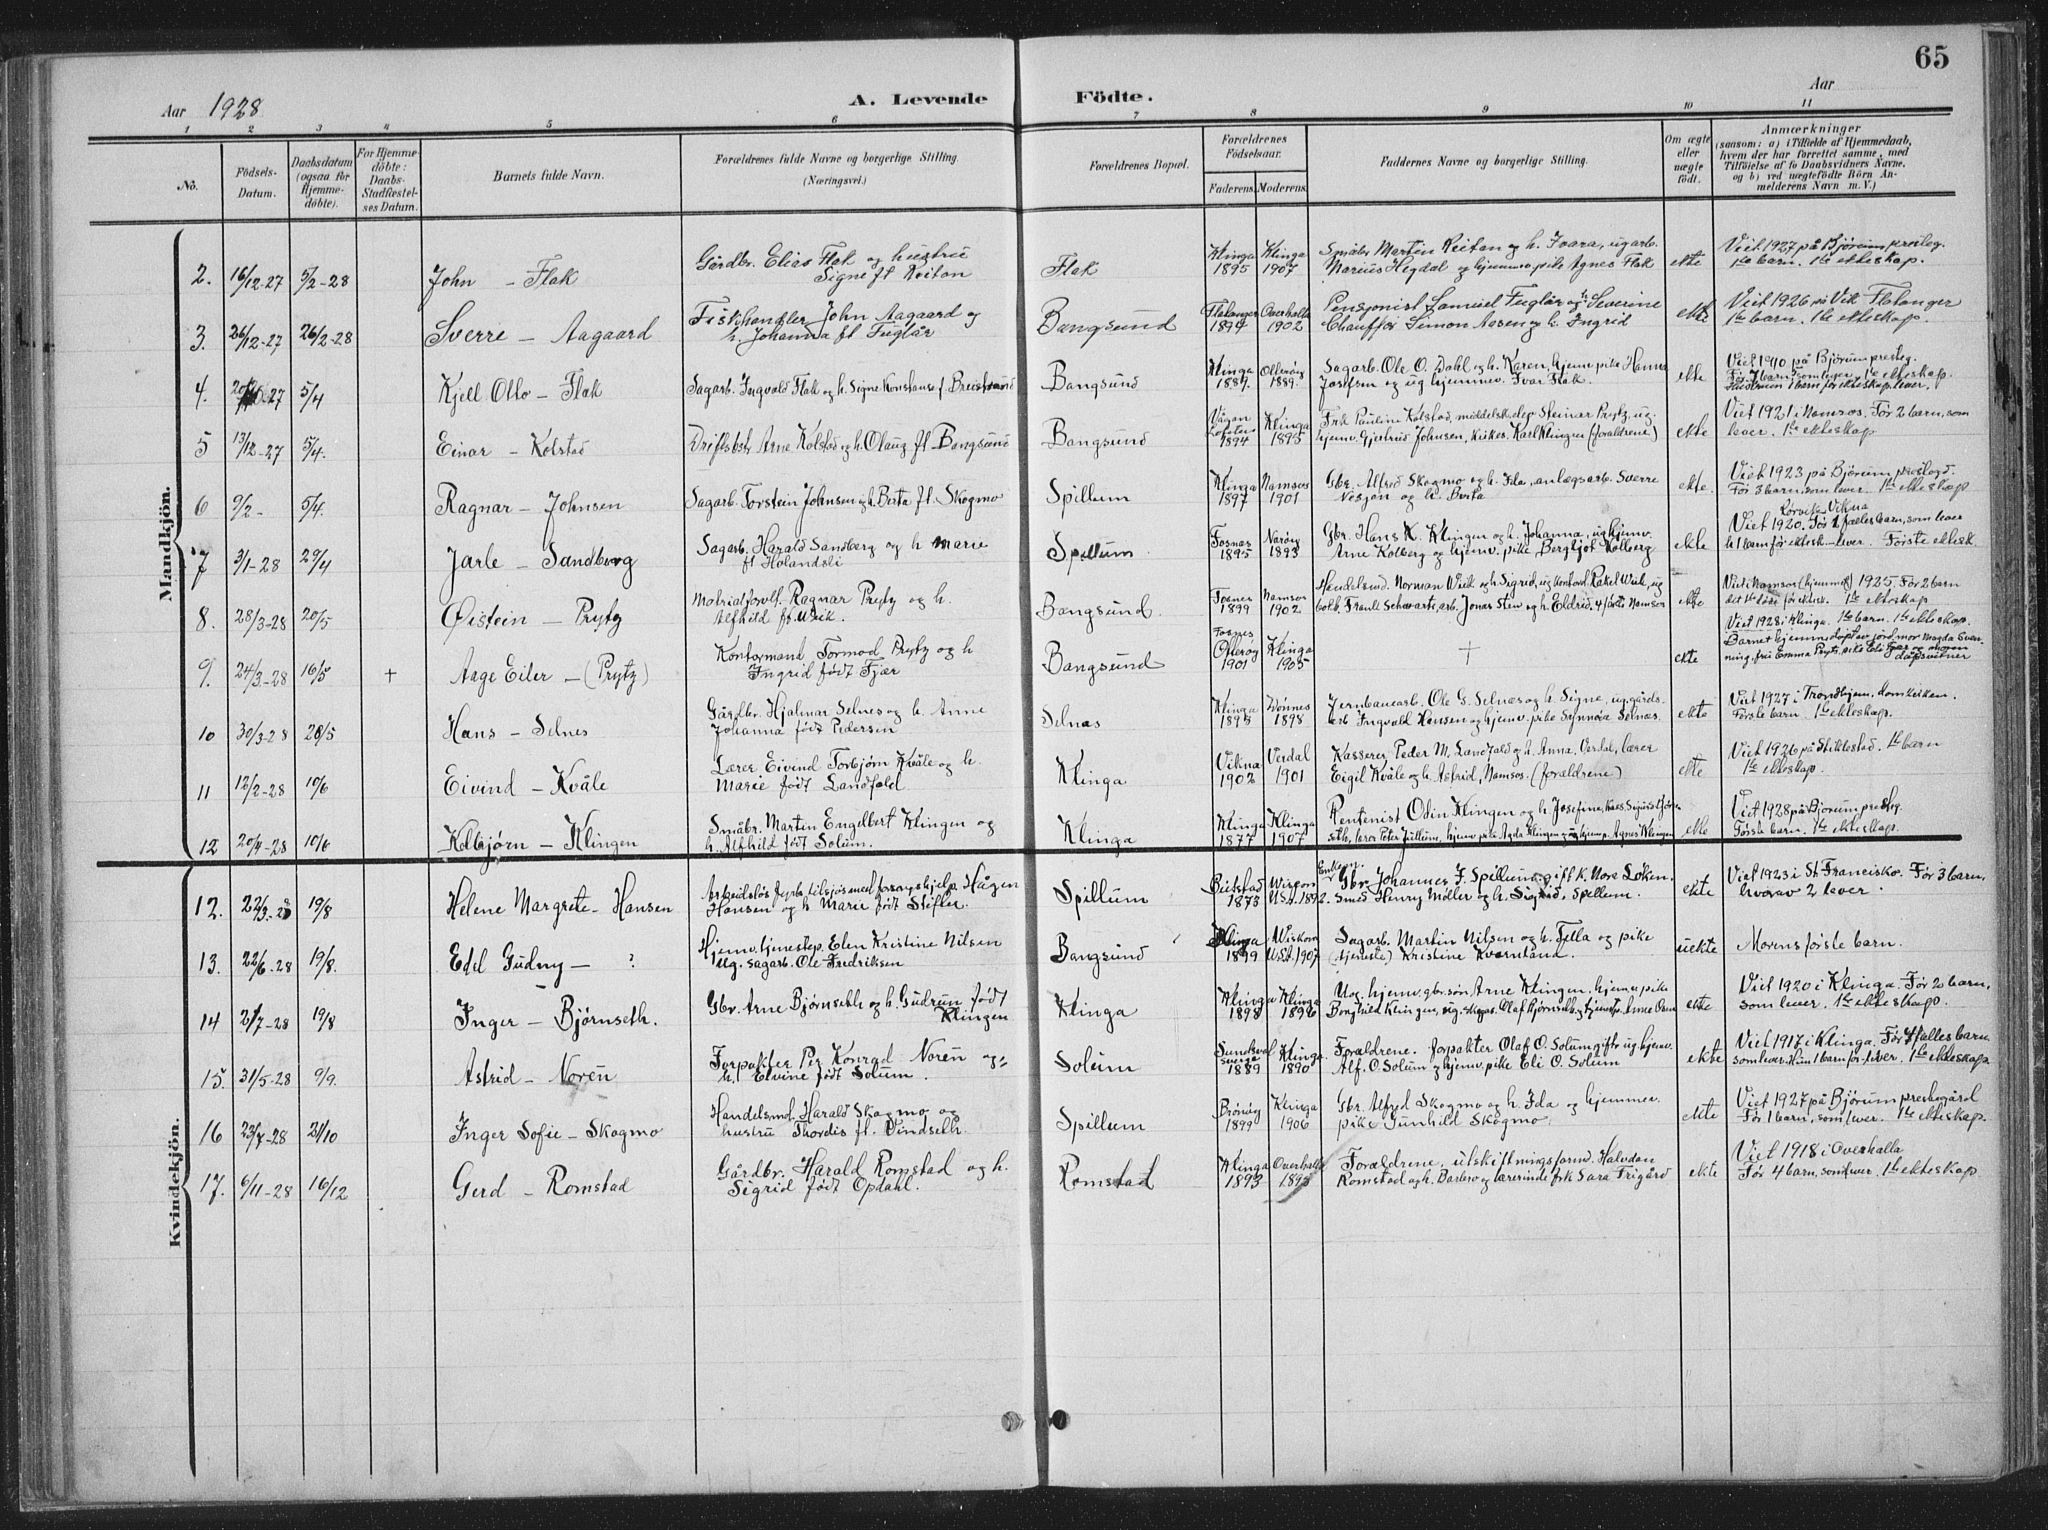 65
Aar 1928
A. Levende Födte.
Aar
1 2 3 4 5 6 7 8 9 10 11
No.
Födsels-Datum.
Daabsdatum (ogsaa for Hjemmedöbte).
For Hjemmedöbte: Daabs-Stadfæstelses Datum.
Barnets fulde Navn.
Forældrenes fulde Navne og borgerlige Stilling. (Næringsvei.)
Forældrenes Bopæl.
Forældrenes Födselsaar.
Faderens. Moderens.
Faddernes Navne og borgerlige Stilling.
Om ægte eller uægte födt.
Anmærkninger
(saasom: a) i Tilfælde af Hjemmedaab, hvem der har forrettet samme, med Tilföielse af to Daabsvidners Navne, og b) ved uægtefödte Börn Anmelderens Navn m. V.)
Mandkjön.
2. 16/12-27 5/2-28 John – Flak Gårdbr. Elias Flak og hustru Signe f. Reitan Flak Klinga 1895 Klinga 1907 Småbr. Martin Reitan og h. Ivara, ug arb. Marius Hegdal og hjemmev. pike Agnes Flak ekte Viet 1927 på Bjørum presteg. 1ste barn. 1ste ekteskap.
3. 26/12-27 26/2-28 Sverre – Aagaard Fiskehandler John Aagaard og h. Johanna f. Fuglår Bangsund Flatanger Overhalla 1902 Pensjonist Samuel Fuglår og h. Severine Chauffør Simon Aasen og h. Ingrid ekte Viet 1926 på Vik. Flatanger 1ste barn. 1ste ekteskap.
4. 5/4 Kjell Otto – Flak Sagarb. Ingvald Flak og h. Signe Konstanse f. Breistrand Bangsund Klinga Otterøy 1889. Sagarb. Ole O. Dahl og h. Karen, hjemv. pike Hanna Josefsen og ug hjemmev. Ivar Flak. ekte Viet 1910 på Bjørum presteg. Før 7 barn, som lever. 1ste ekteskap. Hustruen 1 barn før ekteskap, lever.
5 13/12-27 5/4. Einar – Kolstad Driftsbst. Arne Kolstad og h. Olaug f. Bangsund Bangsund Vågan Lofoten 1894 Klinga 1895 Frk Pauline Kolstad, middelsk. elev Steinar Prytz, ug. hjemv. Gjertrud Johnsen, Karl Klingen (foreldrene) ekte Viet 1921 i Namsos. Før 2 barn, som lever. 1ste ekteskap
6 9/2- 5/4. Ragnar – Johnsen Sagarb. Torstein Johnsen og h. Berta f. Skogmo Spillum Klinga 1897 Namsos 1901 Gbr. Alfred Skogmo og h. Ida, anlegsarb. Sverre Nesjan og h. Berta ekte. Viet 1923 på Bjørum prestegd. Før 3 barn, som lever. 1ste ekteskap
7 3/1-28 29/4 Jarle – Sandberg Sagarb. Harald Sandberg og h Marie f. Holandsli Spillum Fosnes 1895 Nærøy 1893 Gbr. Hans K. Klingen og h. Johanna, ug hjemv. Arne Kolberg og hjemv. pike Bergljot Kolberg ekte Rørvik – Vikna Viet 1920. Før 1 felles barn, som lever h 1 barn før ektesk. – lever. Første ektesk.
8. 28/3-28 20/5 Øistein – Prytz Matrialforvl. Ragnar Prytz og h. Alfhild f. Wiik. Bangsund Fosnes 1899 Namsos 1902 Handelsmd. Norman Wiik og h Sigrid, ug kontord. Rakel Wiik, ug bokh. Traull Schwartz, arb. Jonas Sten og h. Eldrid. 4/første Namsos ekte Viet i Namsos (hjemmet) 1925. Før 2 barn 1ste ekteskap
9. 24/3-28 16/5 + Aage Eiler – (Prytz) Kontormand Tormod Prytz og h Ingrid født Fjær Bangsund Fosnes Otterøy 1901 Klinga 1905 + ekte Viet 1928 i Klinga. 1ste barn. 1ste ekteskap. Barnet hjemmedøpt av jordmor Magda Svenning, fru Emma Prytz, pike Eli Fjær og moren dåpsvitner
10 30/3-28 28/5 Hans – Selnes Gårdbr. Hjalmar Selnes og h. Anne Johanna født Pedersen Selnæs Klinga 1895 Vønnes 1898 Jernbanearb. Ole G. Selnæs og h. Signe, ug. gårdsarb Ingvald Hansen og hjemv. pike Synnøva Selnæs. ekte Viet 1927 i Trondhjem, domkirken. Første barn. 1ste ekteskap.
11 12/2-28 10/6 Eivind – Kvåle Lærer Eivind Torbjørn Kvåle og h. Marie født Landfald Klinga Vikna 1902 Verdal 1901 Kasserer Peder M. Landfald og h. Anna, Verdal, lærer Eigil Kvåle og h. Astrid, Namsos. (foreldrene) ekte Viet 1926 på Stiklestad. 1ste barn 1ste ekteskap.
12 20/4-28 10/6 Kolbjørn – Klingen Småbr. Martin Engelbert Klingen og h. Alfhild født Solum. Klinga Klinga 1877 Klinga 1907 Rentenist Odin Klingen og h. Josefine, lærer Peter Jullum, hjemv. pike Agda Klingen og hjemv. p. Agnes Klingen ekte Viet 1928 på Bjørum presteg. Første barn. 1ste ekteskap.
Kvindekjön.
12. 22/3-28 19/8 Helene Margrete – Hansen Arbeidsløs fyrb. tilsjøs med forsorgshjelp Hågen Hansen og h Marie født Stifler. Spillum Beitstad 1873 Wiscon. U.S.A. 1892. Gbr. Johannes J. Spillum, gift k. Nora Løken. Enkem. Smed Henry Møller og h. Sigrid, Spillum ekte Viet 1923 i St. Francisko. Før 3 barn, hvorav 2 lever.
13. 22/6-28 19/8. Edel Gudny – ? Hjemv. tjenestep. Elen Kristine Nilsen Ug. sagarb. Ole Fredriksen Bangsund Klinga 1899 Wiskon. U.S.A. 1907 Sagarb. Martin Nilsen og h. Tella og pike (tjeneste) Kristine Kvernland. uekte Morens første barn.
14 2/7-28 19/8 Inger – Bjørnseth. Gbr. Arne Bjørnseth og h. Gudrun født Klingen Klinga Klinga 1898 Klinga 1896 Ung. hjemv. gbr.søn, Arne Klingen, hjemv. pike Borghild Klingen, ug. Olaf Bjørnseth og tjenestep. Anne ekte Viet 1920 i Klinga. Før 2 barn, som lever. 1ste ekteskap.
15. 31/5-28 9/9. Astrid – Norén Forpakter Per Konrad Norén og h. Elvine født Solum. Solum Sundsval Sverige 1889 Klinga 1890 Foreldrene. Forpakter Olaf O. Solum gift, ug hjemv. Alf. O. Solum og hjemv. pike Eli O. Solum ekte Viet 1917 i Klinga. Før 4 felles barn, som lever. Hun 1 barn før – lever. 1ste ekteskap
16 23/7-28 21/10 Inger Sofie – Skogmo Handelsmd. Harald Skogmo og hustru Thordis f. Vindseth. Spillum Brønøy 1899 Klinga 1906 Gbr. Alfred Skogmo og h. Ida og hjemmev. pike Gunhild Skogmo. ekte Viet 1927 på Bjørum prestegård Før 1 barn, som lever. 1ste ekteskap.
17. 6/11-28 16/12 Gerd – Romstad Gårdbr. Harald Romstad og h. Sigrid født Opdahl. Romstad Klinga 1893 Overhalla 1893 Foreldrene, utskiftningsformd. Halvdan Romstad og h. Barbro og lærerinde frk Sara Frigård ekte Viet 1918 i Overhalla Før 4 barn, som lever. 1ste ekteskap